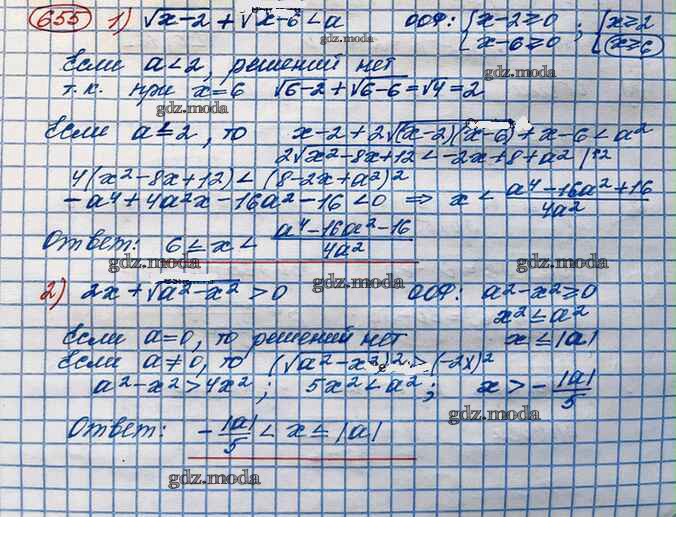 655 1) √x-2 + √x-6 < a ООФ: { x-2≥0 ; { x≥2
x-6≥0 x≥6
gdz.moda
Если a<2, решений нет gdz.moda
т.к. при x=6 √6-2 + √6-6 = √4 = 2
gdz.moda
Если a≤2, то x-2+2√(x-2)(x-6) + x-6 < a²
2√x²-8x+12 < -2x+8+a² |↑2
4(x²-8x+12) < (8-2x+a²)²
-a⁴+4a²x-16a²-16<0 ⇒ x < a⁴-16a²+16 / 4a²
Ответ: 6 ≤ x < a⁴-16a²-16 / 4a²
gdz.moda gdz.moda gdz.moda
2) 2x+√a²-x² > 0 ООФ: a²-x²≥0
x²≤a²
Если a=0, то решений нет x≤|a|
Если a≠0, то (√a²-x²)² > (-2x)²
a²-x²>4x² ; 5x²<a² ; x > - |a| / 5
gdz.moda
Ответ: - |a| / 5 < x ≤ |a|
gdz.moda
gdz.moda